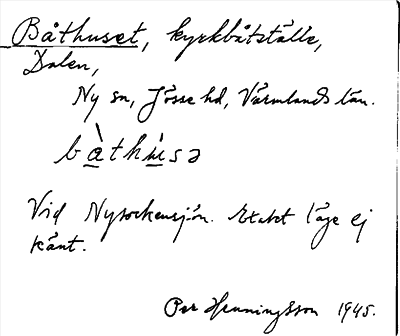 Båthuset, kyrkbåtställe,
Dalen,
Ny sn, Jösse hd, Värmlands län.
bàthu̱sə
Vid Nysockensjön. Exakt läge ej
känt.
Per Henningsson 1945.